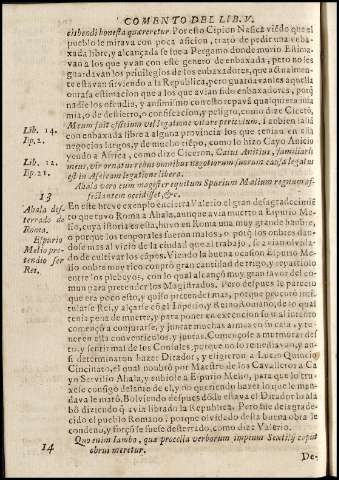 COMENTO DEL LIB. V.
cishendi honesta quæreretur. Por esto Cipion Nasica viẽdo que el
pueblo le mirava con poca aficion, trato de pedir una enba-
xada libre, y alcançada se fue a Pergamo donde murio. Estima-
van a los que yvan con este genero de enbaxada, pero no les
guardavan los privilegios de los enbaxadores, que actualmen-
te estavan sirviendo a la Republica, pero guardavanles aquella
onrosa estimacion que a los que avian sido enbaxadores, porq̃
nadie los ofendia, y ansi mismo con esto repara qualquiera
mia, o de destierro, o confiscacion, y peligro, como dize Ciceró
Mecum fuit officium vel legatione vitare periculum. I tabien salia
con enbaxada libre a alguna provincia los que tenian en ella
negocios largos, y de mucho tiẽpo, como lo hizo Cayo Anicio
yendo a Africa, como dize Ciceron, Caius Anitius, familiaris
meus, vir ornatus rebus omnibus negotiorum suorum causa legatus
est in Africam legatione libera.
Lib. 14.
Ep. 2.
Lib. 12.
Ep. 21.
Ahala vero cum magister equitum Spurium Malium regnum af-
fectantem occidisset, &c.
13
Ahala des-
terrado de
Roma.
Espurio
Melio pre-
tendio ser
Rei.
En este breve exemplo encierra Valerio el gran desagradecimiẽ
to que tuvo Roma a Ahala, aunque avia muerto a Espurio Me-
lio, cuya istoria es esta, huvo en Roma una muy grande hanbre,
o porque los temporales fueron malos, o porq̃ los onbres dan-
dose mas al vicio de la ciudad que al trabajo, se avian olvida-
do de cultivar los cãpos. Viendo la buena ocasion Espurio Me-
lio onbre muy rico conpro gran cantidad de trigo, y repartiolo
entre los plebeyos, con lo qual alcançò muy gran favor del co-
mun para pretender los Magistrados. Pero despues le parecio
que era poco esto, y quiso pretender mas, porque procurò inti-
tularse Rei, y alçarse cõ el Inperio, y Reino Romano, de lo qual
tenia pena de muerte, y para poner en execucion su mal intento
començò a conjurarse, y juntar muchas armas en su casa, y te-
ner en ella conventiculos, y juntas. Començose a murmurar des-
to, y sentir mal de los Consules, porque no lo remediavan, y an-
si determinaron hazer Ditador, y eligieron a Lucio Quincio
Cincinato, el qual nonbrò por Maestre de los Cavalleros a Ca-
yo Servilio Ahala, y enbiole a Espurio Melio, para que lo tru-
xesse consigo delante de el, y no queriendo hazer lo que le man-
dava le matò. Bolviendo despues dõde estava el Ditador lo ala-
bò diziendo q̃ avia librado la Republica. Pero fue desagrade-
cido el pueblo Romano, porque olvidado desta buena obra le
condeno, y forçò se fuesse desterrado, como dize Valerio.
14
Quo enim lambo, qua procella verborum impium Sextilij caput
obrui meretur.
De-